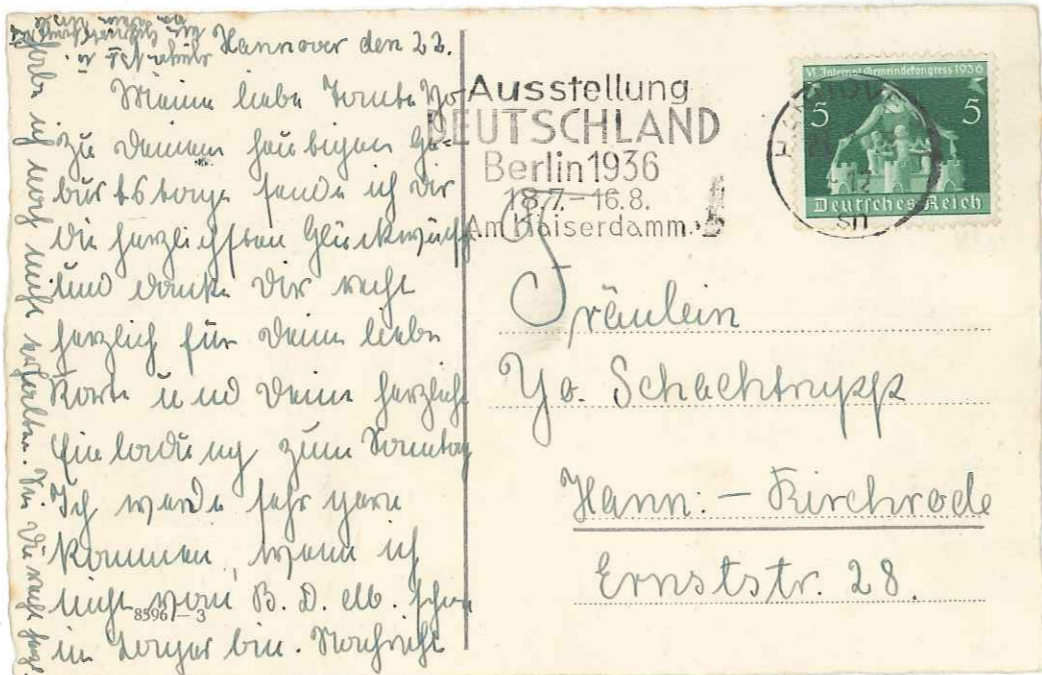 Hannover den 22.
Meine liebe Tante Yo
zu Deinem heutigen Ge-
burtstage sende ich Dir
die herzlichsten Glückwünsche
und danke Dir recht
herzlich für Deine liebe
Karte und Deine herzliche
Einladung zum Sonntag
Ich werde sehr gern
kommen, wenn ich
nicht vom B. D. M. schon
im Lager bin. Nachricht
habe ich noch nicht erhalten. Sei Du recht herzl.
8596 – 3
Ausstellung
DEUTSCHLAND
Berlin 1936
18.7.–16.8.
Am Kaiserdamm
VI. Internat. Gemeindekongress 1936
5 5
Deutsches Reich
Fräulein
Yo. Schachtrupp
Hann. – Kirchrode
Ernststr. 28.